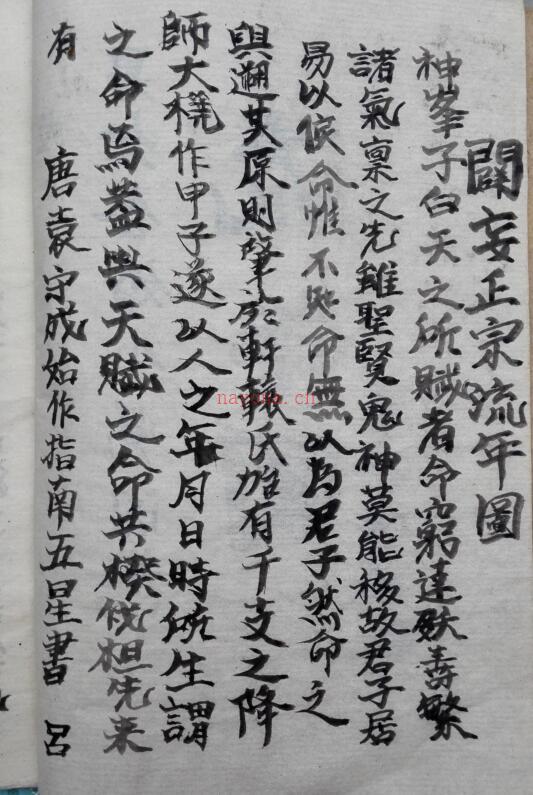 闢妄正宗流年圖
神峯子曰天之所賦者命窮達殀壽繁
諸氣稟之先雖聖賢鬼神莫能移故君子居
易以俟命惟不知命無以為君子然命之
與遡其原則肇於軒轅氏始有干支之降
師大撓作甲子遂以人之年月日時所生謂
之命焉蓋與天賦之命共揆後世先来
有 唐袁守成始作指南五星書 呂
nayuan.cn